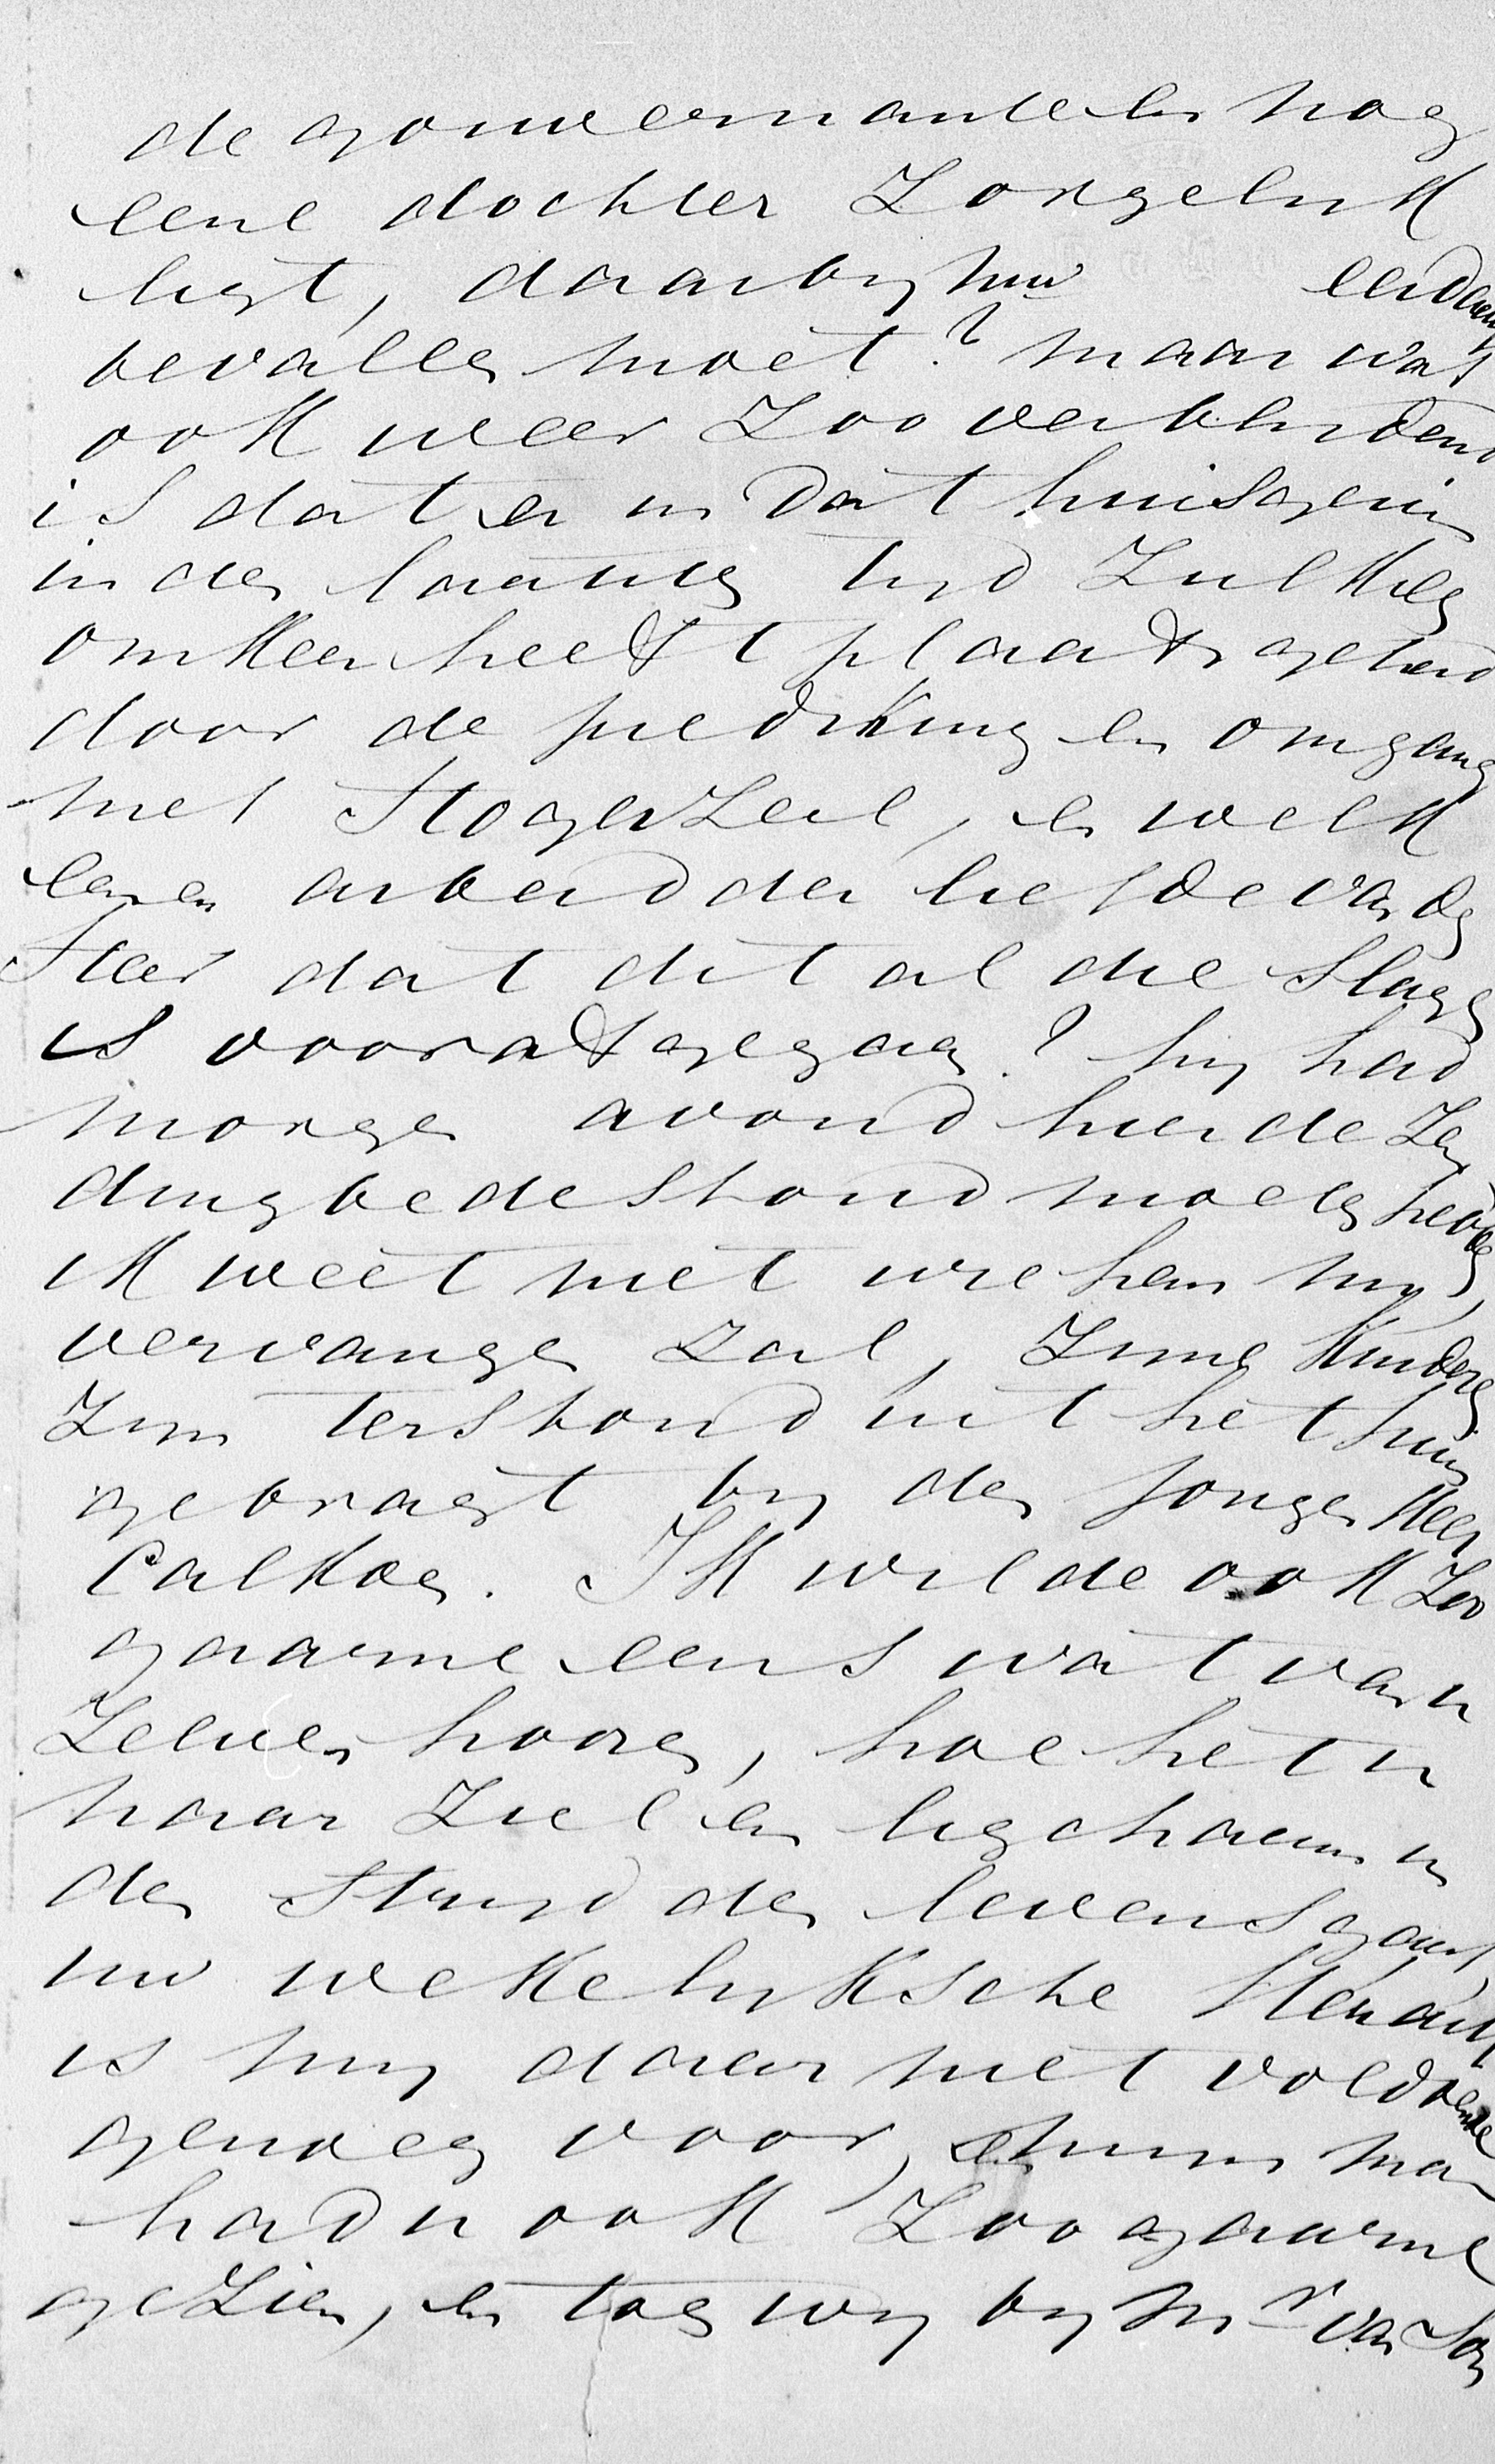 de gouvernante en nog
eene dochter Zorgelijk
ligt, daarbij nu eerdaags
bevallen moet? maar wat
ook weer Zoo verblijdend
is dat er in dat huisgezin
in den laatsten tijd Zulk een
omkeer heeft plaats gehad
door de prediking en omgang
met Hogerzeil, en welk
eenen arbeid der liefde van den
Heer dat dit al die slagen
is vooraf gegaan? hij had
morgen avond hier de Zen
dingbedestond moeten hebben
ik weet niet wie hem nu,
vervangen zal, Zijne kinderen
Zijn terstond uit het huis
gebragt bij den jongen Heer
Calkoen. Ik wilde ook Zoo
gaarne eens wat van
Zelve hooren, hoe het u
naar Ziel en ligchaam in
den strijd des levens gaat,
uw wekelijksche Heraut
is mij daar niet voldoende
genoeg voor, en mijn man
had u ook Zoo gaarne
gezien, en toen wij bij Mr van Son